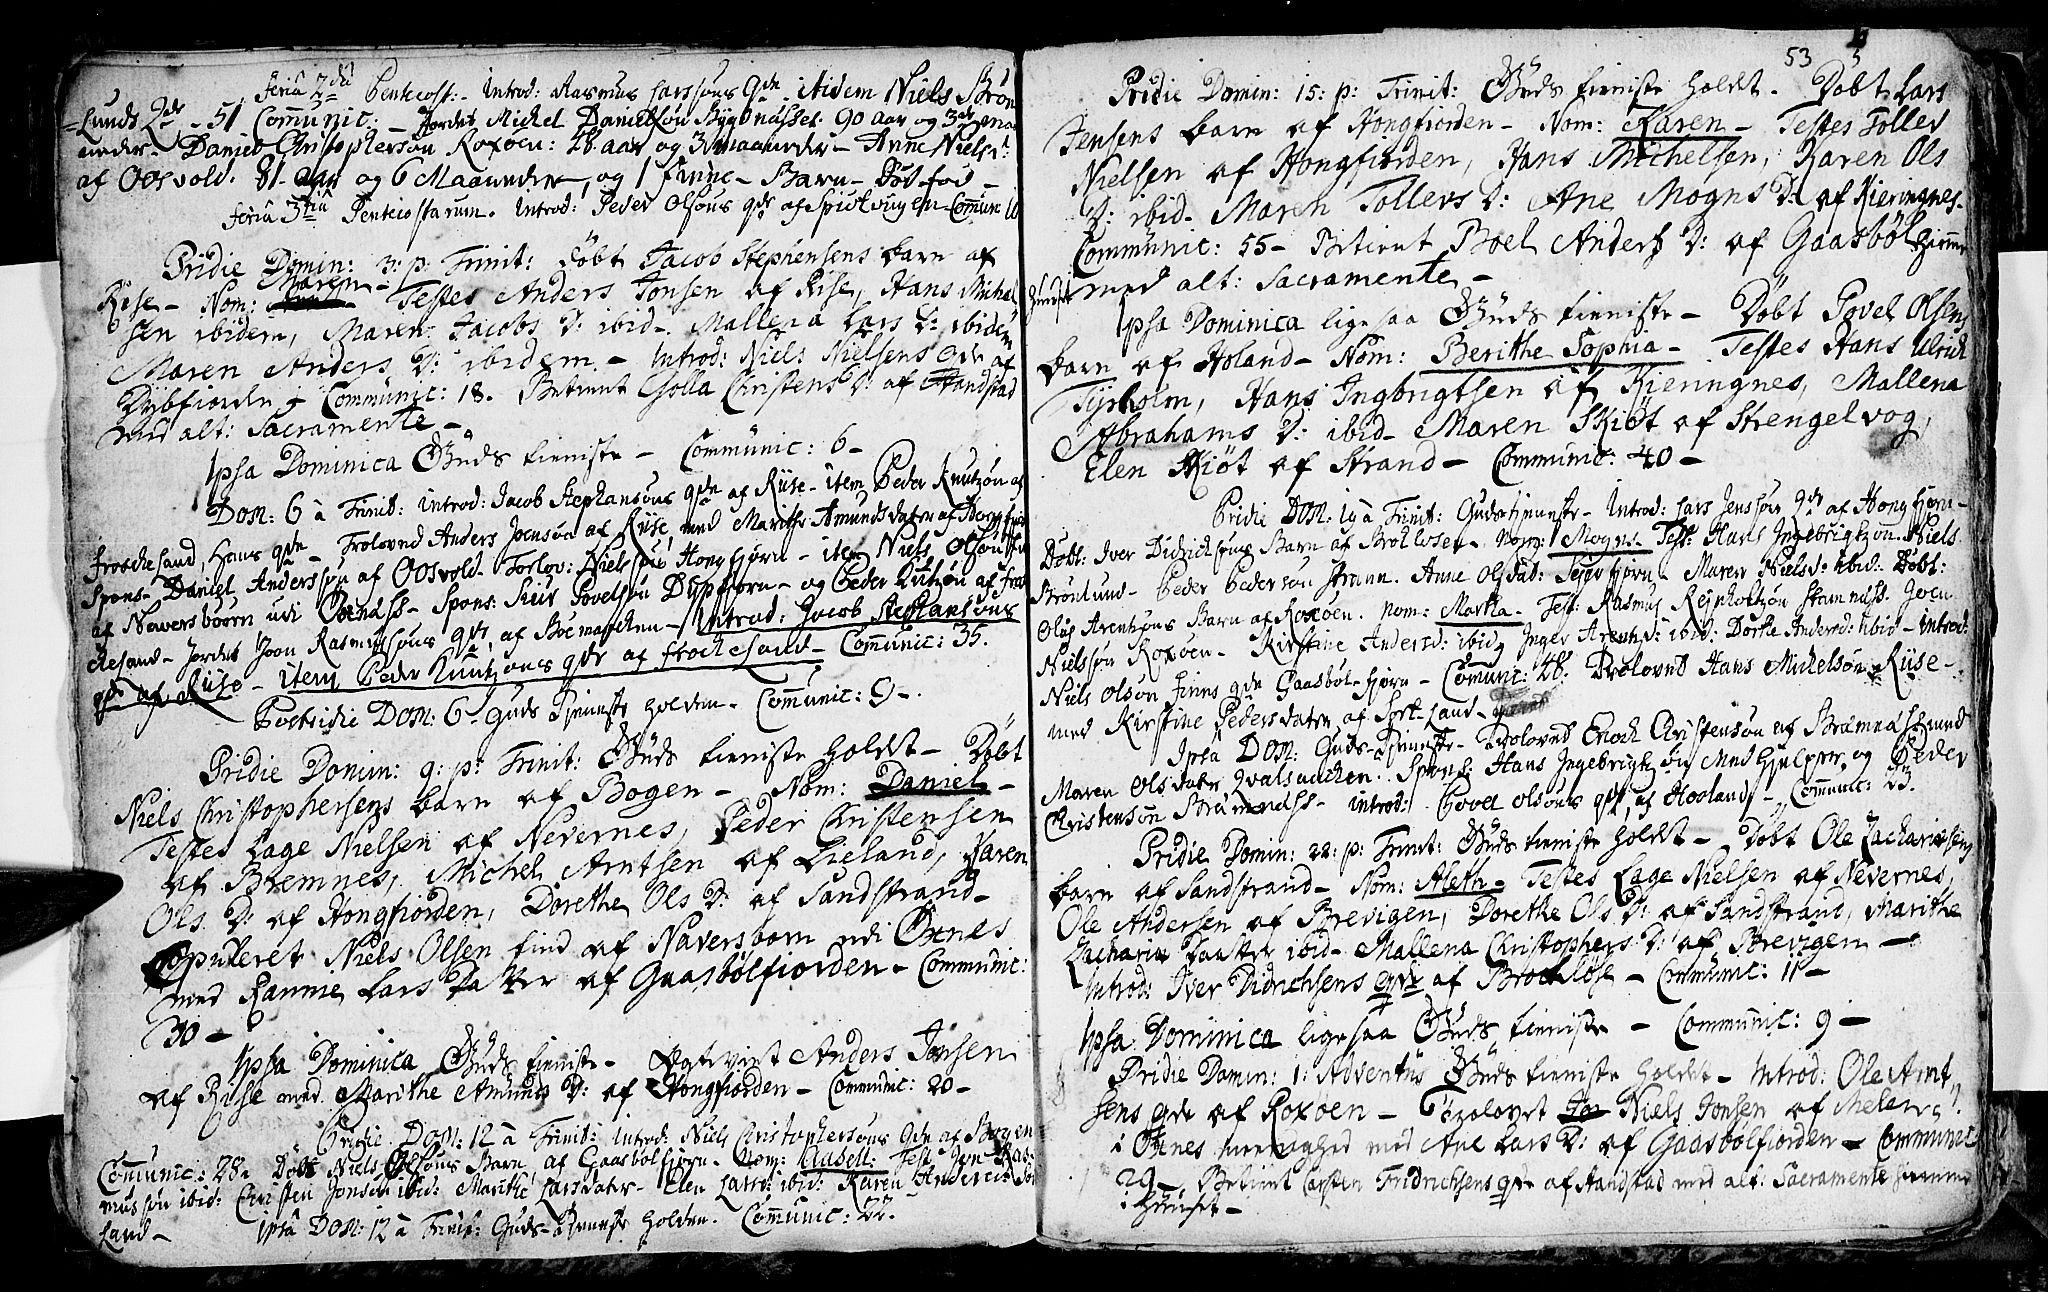 Feria 2da Pentecost: - Introd: Rasmus Larssøns qde - itidem Niels Brön
=Lunds qde - 51 Communic: - Jordet Michel Danielsøn Bygtnasset 90 aar og 3
maaneder - Daniel Christophersøn Roxöen: 28 aar og 3 maaneder - Anne Niels D:
af Oosvold: 81 aar og 6 Maaneder, og 1 Finne - Barn - död föd -
Feria 3tia Pentecostarum. Introd: Peder Olsøns qde af Spiolvugen - Commun 10
Pridie Domin: 3: p: Trinit: Döbt Jacob Stephensens barn af
Riise - Nom: Maren - Testes Anders Jonsen af Rise, Hans Michel
sen ibidem, Maren Jacobs D: ibid - Mallena Lars D: ibidem
Maren Anders D: ibidem - Introd: Niels Nielsens qde af
Dybfiorde - Communic: 18. Betient Golla Christens D: af Handstad
med alt: Sacramente -
Ipsa Dominica Guds tieniste - Communic: 6 -
Dom: 6 à Trinit: introd: Jacob Stephansøns qde af Riise - item Peder Knutzøn af
Frochesand, Hans qde - Troloved Anders Joensøn af Riise, med Marithe Amundsdater af Hongfiord
Spons - Daniel Anderssøn af Oosvold - Forlov: Niels Hongfjorn - item Niels Olsøn
af Naversboern udi Öxness - Spons: Siur Povelsøn Dÿpfiorn - og Peder Knutzøn af Fro
chesand - Jordet Joon Rasmussøns qde af Boemarcken - Introd: Jacob Stephansøns
qde af Riise - item Peder Knutzøns qde af Frochesand - Communic: 35.
Postridie Dom: 6 - Guds Tjeneste holden - Communic: 9 -
Pridie Domin: 9: p: Trinit: Guds tieniste holdt - Döbt
Niels Christophersens barn af Bogen - Nom: Daniel -
Testes Lage Nielsen af Nevernes, Peder Christensen
af Bremnes, Michel Arntsen af Lieland, Karen
Ols D: af Hongfiorden, Dorethe Ols D: af Sandstrand -
Copuleret Niels Olsen find af Naversborn udi Öxnes
med Rannie Lars Datter af Gaasbölfiorden - Communic:
30 -
Ipsa Dominica Guds tieniste - Egteviet Anders Jonsen
af Riise med Marithe Amunds D: af Hongfiorden - Communic: 20 -
Pridie Dom: 12 à Trinit: introd: Niels Christophersøns qde af Bogen
Communic: 28. Döbt Niels Olsøns Barn af Gaasbölfjorn - Nom: Test: Jon Ras
mussøn ibid: Christen Jonsen ibid: Marithe Larsdater - Elen Larsd: ibid: Karen Andersd:
Land -
ipsâ Dom: 12 à Trinit: Guds Tjeneste holden. Communic: 22.
53
Pridie Domin: 15: p: Trinit: Guds tieniste holdt - Döbt Lars
Jensens barn af Hongfiorden - Nom: Karen - Testes Tollev
Nielsen af Hongfiorden, Hans Michelsen, Karen Ols
D: ibid - Maren Tollevs D: Ane Mogns D: af Kieringnes -
Communic: 55 - Betient Boel Anders D: af Gaasböl hiemme
i Huuset med alt: Sacramente -
Ipsa Dominica ligesaa Guds tieniste - Döbt Povel Olsens
barn af Holand - Nom: Berithe Sophia - Testes Hans Ulrich
Tyrholm, Hans Ingbrigtsen af Kieringnes, Mallena
Abrahams D: ibid - Maren Skiöt af Strengelvog,
Elen Skiöt af Strand - Communic: 40 -
Pridie Dom: 19 à Trinit: Gudstjeneste - Introd: Lars Jenssøn qde af Hongfjorn -
Döbt: Iver Didrichsøns Barn af Brotlösen - Nom: Mogns - Test: Hans Ingebrigtzøn - Niels
Brönlund - Peder Pedersøn Strann. Anne Olsdat: - Maren Nielsd: ibid: Döbt:
Oluf Arentzøns Barn af Roxöen. nom: Martha - Test: Rasmus Stamness. Joen
Nielssøn Roxöen - Kirstine Andersd: ibid, Inger Arentzd: ibid: Dorthe Andersd: ibid - introd:
Niels Olsøn Finns qde Gaasböl-fjorn - Communic: 48. Trolovet Hans Michelsøn Riise -
med Kirstine Pedersdater af Sort-Land -
Ipsâ Dom: Guds-Tjeneste - Trolovet Enoch Christensøn af Bræmness med
Maren Olsdater Qvalsaachen. Spons: Hans Ingebrigtzøn Medhjelper, og Peder
Christensøn Bræmness - introd: Povel Olsøns qde af Hooland - Communic: 23.
Pridie Domin: 22: p: Trinit: Guds tieniste holdt - Döbt Ole Zachariæsens
barn af Sandstrand - Nom: Aleth - Testes Lage Nielsen af Nevernes,
Ole Andersen af Brevigen, Dorethe Ols D: af Sandstrand, Marithe
Zachariæ Daatter ibid - Mallena Christophers D: af Brevigen -
Introd: Iver Didrichsens qde af Brocklöse - Communic: 11 -
Ipsa Dominica ligesaa Guds tieniste - Communic: 9 -
Pridie Domin: 1: Adventus Guds tieniste holdet - Introd: Ole Arnt
sens qde af Roxöen - Trolovet Niels Jonsen af
i Öxnes menighed med Ane Lars D: af Gaasbölfiorden - Communic
29 - Betient Carsten Fridrichsens qde af Handstad med alt: Sacramente hiemme
i Huuset -